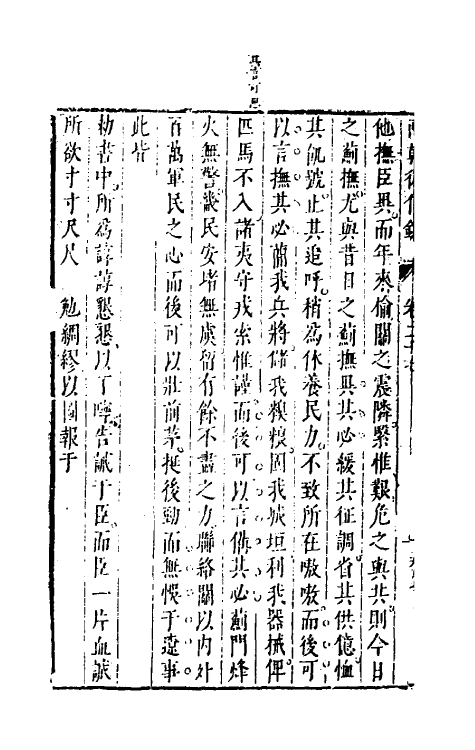 其言可思
兩朝從信錄 卷二十七
他撫臣異而年來偷關之震隣緊惟艱危之與共則今日
之薊撫尤與昔日之薊撫異其必緩其征調省其供億恤
其飢號止其追呼稍為休養民力不致所在嗷嗷而後可
以言撫其必簡我兵將儲我糗糧固我城垣利我器械俾
匹馬不入諸夷守戎索惟謹而後可以言備其必薊門烽
火無警畿民安堵無虞留有餘不盡之力聯絡關以內外
百萬軍民之心而後可以壯前茅挺後勁而無悞于遼事
此皆
勑書中所為諄諄懇懇以丁嚀告誡于臣而臣一片血誠
所欲寸寸尺尺 勉綢繆以圖報于